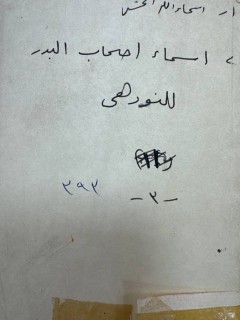 ١ر اسماء الله الحسنى
٢ اسماء اصحاب البدر
للنودهى
-٣-
٣٩٣